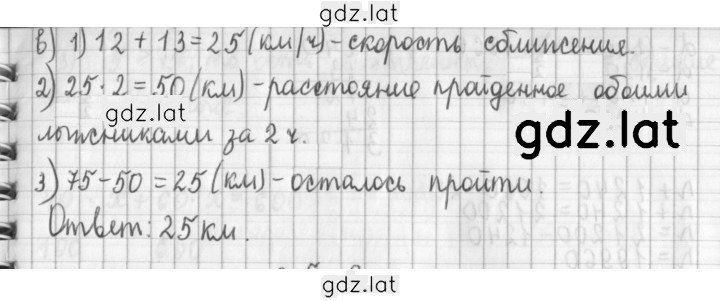 gdz.lat
в) 1) 12 + 13 = 25 (км/ч) - скорость сближения.
2) 25 · 2 = 50 (км) - расстояние пройденное обоими
gdz.lat
лыжниками за 2 ч.
gdz.lat
3) 75 - 50 = 25 (км) - осталось пройти.
Ответ: 25 км.
gdz.lat